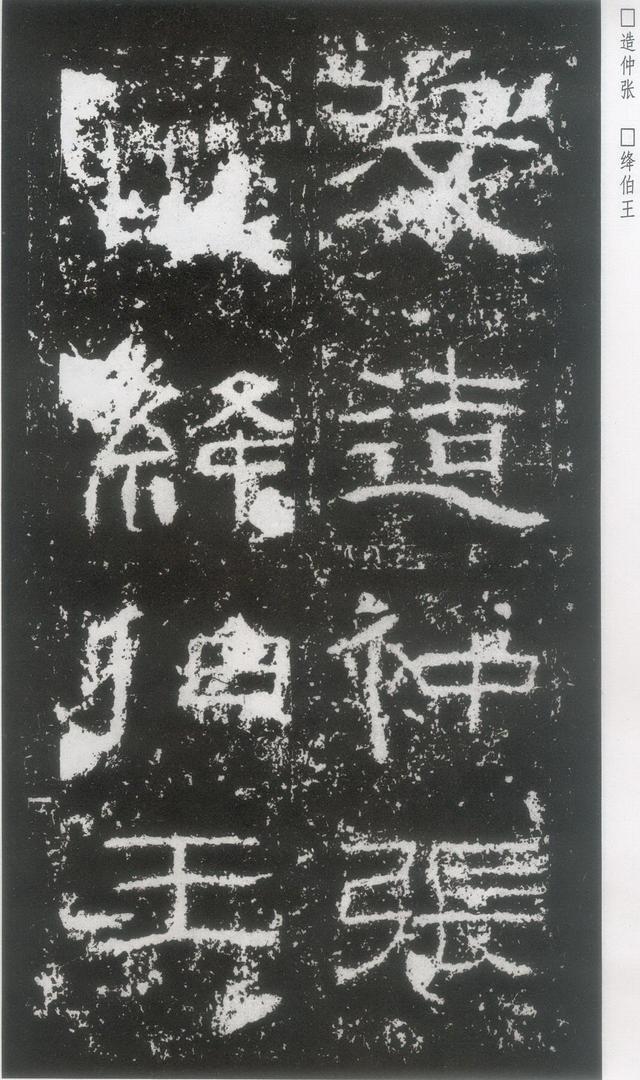 □造仲张 □绛伯王
造仲張
絳伯王